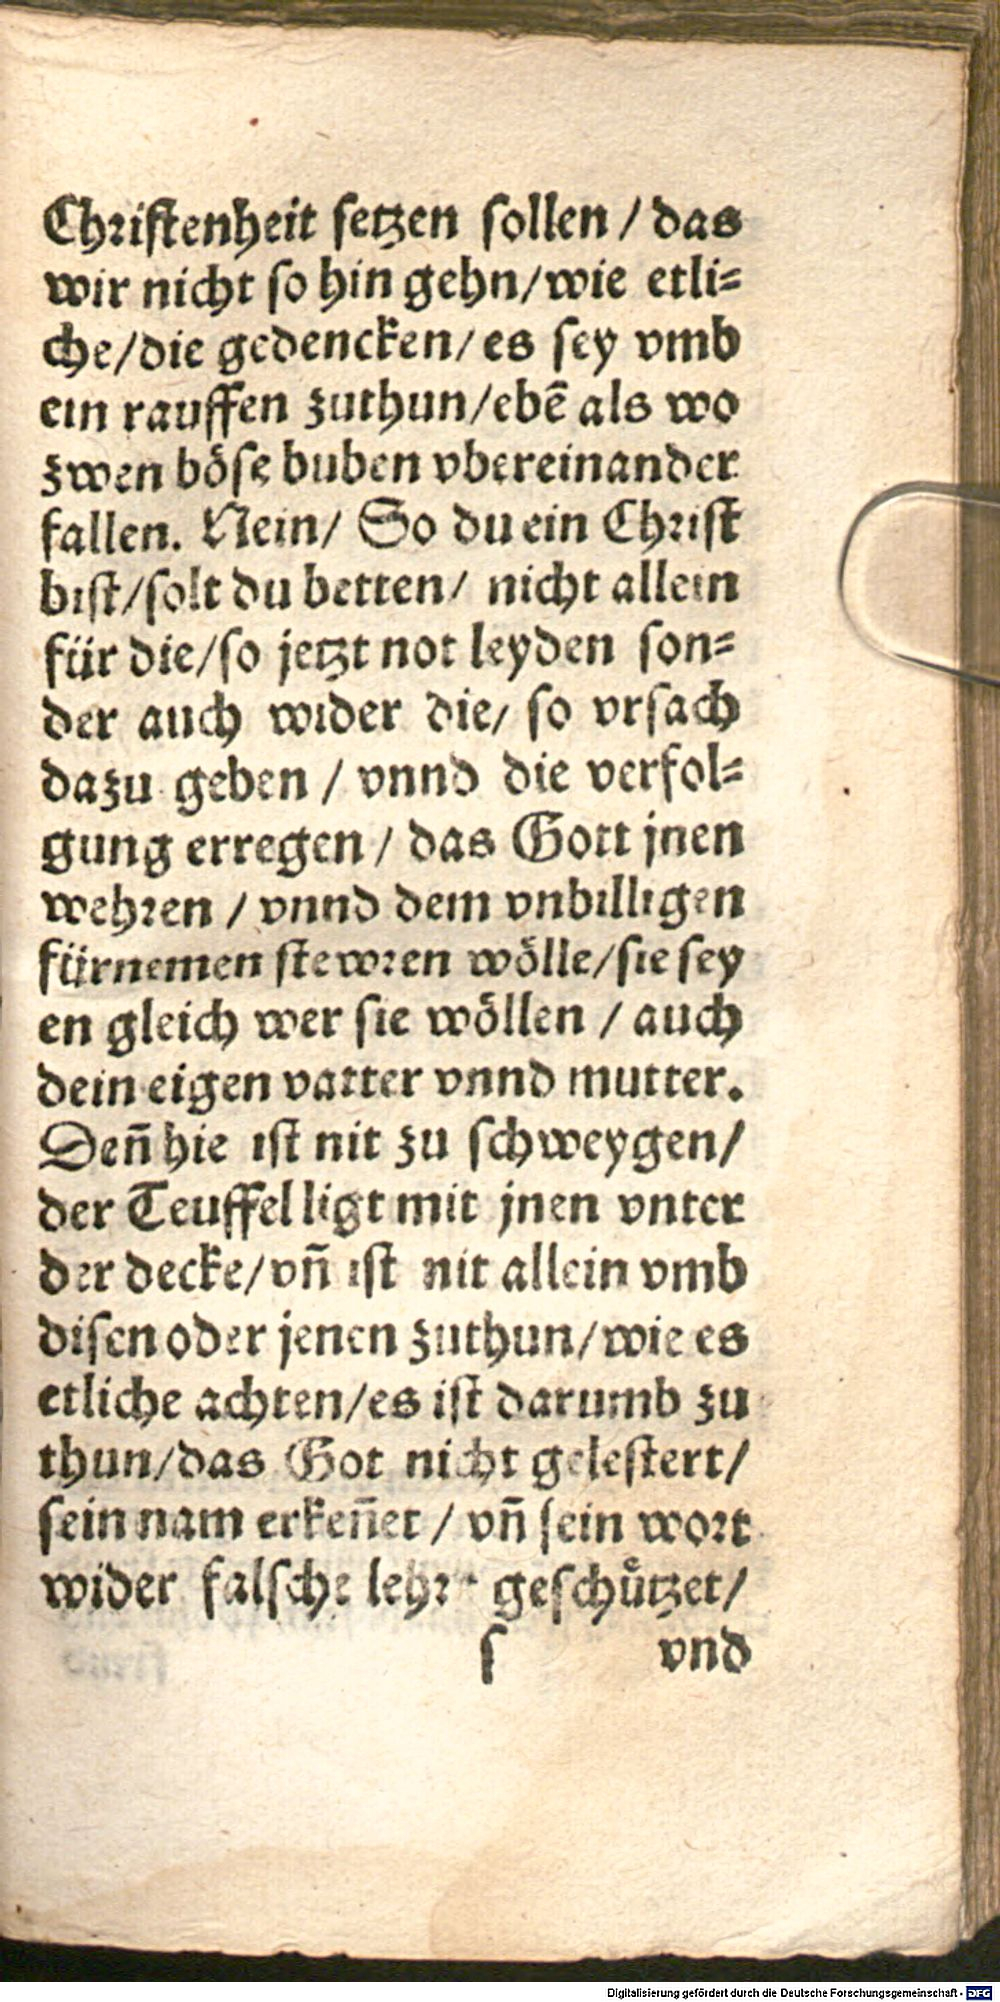 Christenheit setzen sollen / das
wir nicht so hin gehn/wie etli=
che/die gedencken/es sey vmb
ein rauffen zuthun/ebē als wo
zwen böse buben vbereinander
fallen. Nein/ So du ein Christ
bist/solt du betten/ nicht allein
für die/so jetzt not leyden son=
der auch wider die/ so vrsach
dazu geben / vnnd die verfol=
gung erregen / das Gott jnen
wehren / vnnd dem vnbilligen
fürnemen stewren wölle/sie sey
en gleich wer sie wöllen / auch
dein eigen vatter vnnd mutter.
Deñ hie ist nit zu schweygen/
der Teuffel ligt mit jnen vnter
der decke/vñ ist nit allein vmb
disen oder jenen zuthun/wie es
etliche achten/es ist darumb zu
thun/das Got nicht gelestert/
sein nam erkeñet / vñ sein wort
wider falsche lehr geschützet/
ſ vnd
Digitalisierung gefördert durch die Deutsche Forschungsgemeinschaft - DFG